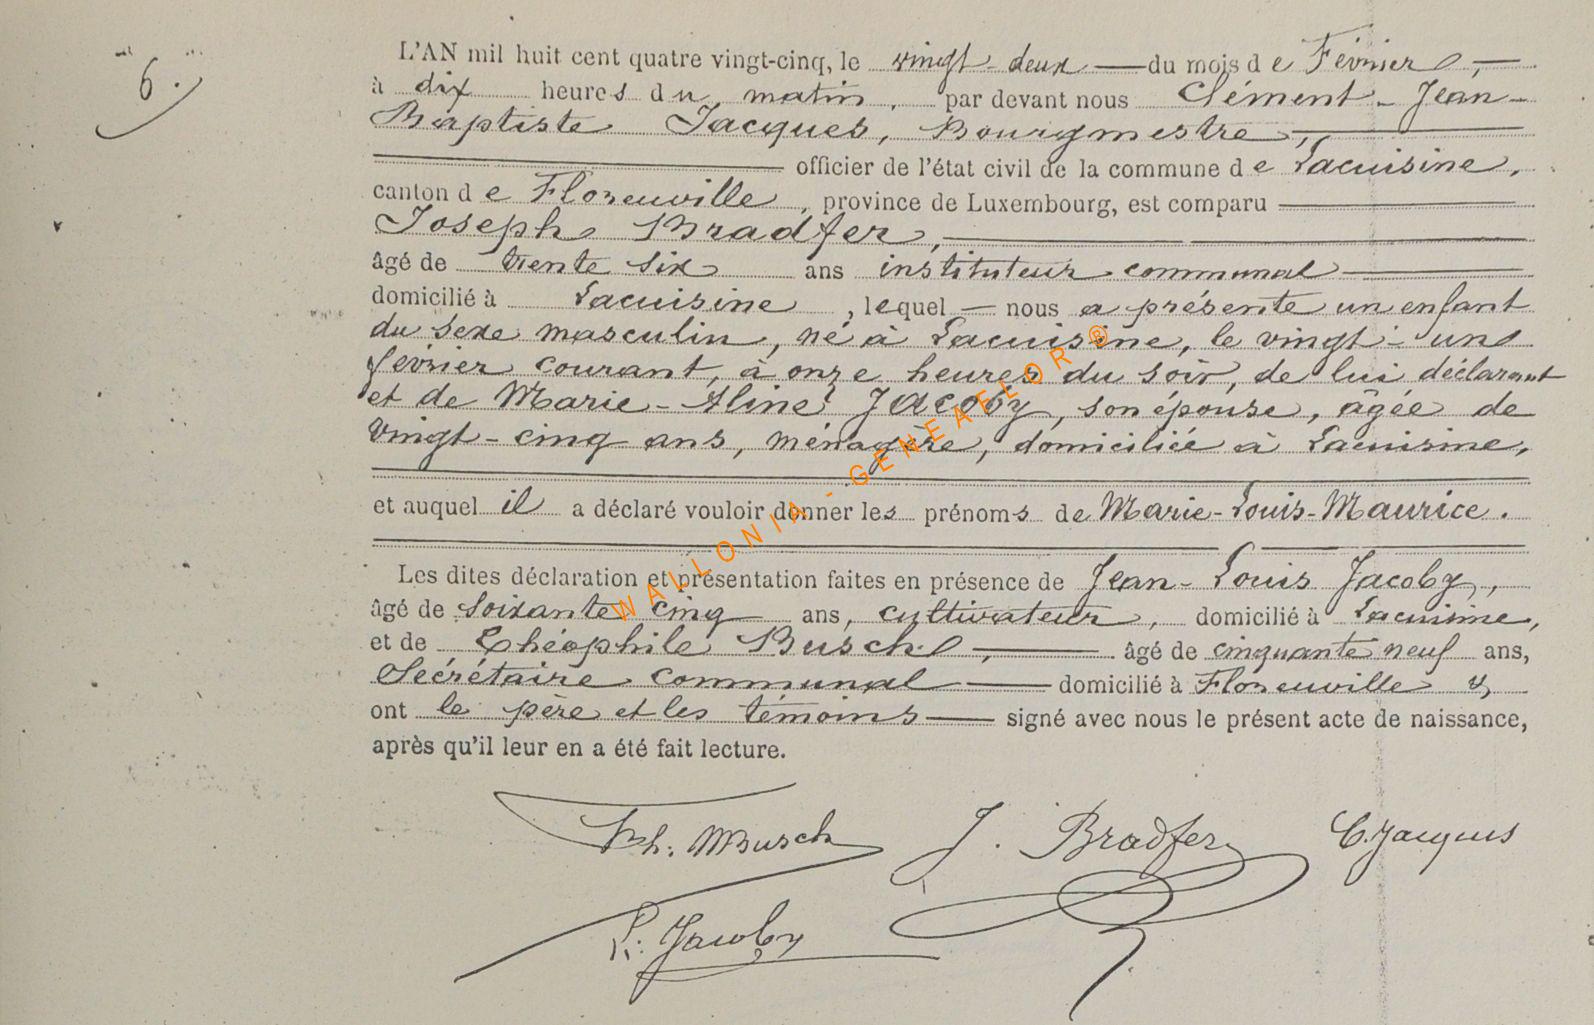 6.
L'AN mil huit cent quatre vingt-cinq, le vingt-deux du mois de Février,
à dix heures du matin, par devant nous Clément-Jean-
Baptiste Jacques, Bourgmestre,
officier de l'état civil de la commune de Lacuisine,
canton de Florenville, province de Luxembourg, est comparu
Joseph Bradfer,
âgé de trente six ans instituteur communal
domicilié à Lacuisine, lequel nous a présenté un enfant
du sexe masculin, né à Lacuisine, le vingt-un
février courant, à onze heures du soir, de lui déclarant
et de Marie-Aline JACOBY, son épouse, âgée de
vingt-cinq ans, ménagère, domiciliée à Lacuisine,
et auquel il a déclaré vouloir donner les prénoms de Marie-Louis-Maurice.
Les dites déclaration et présentation faites en présence de Jean-Louis Jacoby,
âgé de soixante cinq ans, cultivateur, domicilié à Lacuisine,
et de Théophile Busch, âgé de cinquante neuf ans,
Sécrétaire communal domicilié à Florenville &
ont le père et les témoins signé avec nous le présent acte de naissance,
après qu'il leur en a été fait lecture.
Th. Busch J. Bradfer C. Jacques
L. Jacoby
WALLONIA - GENEAFLOR ®